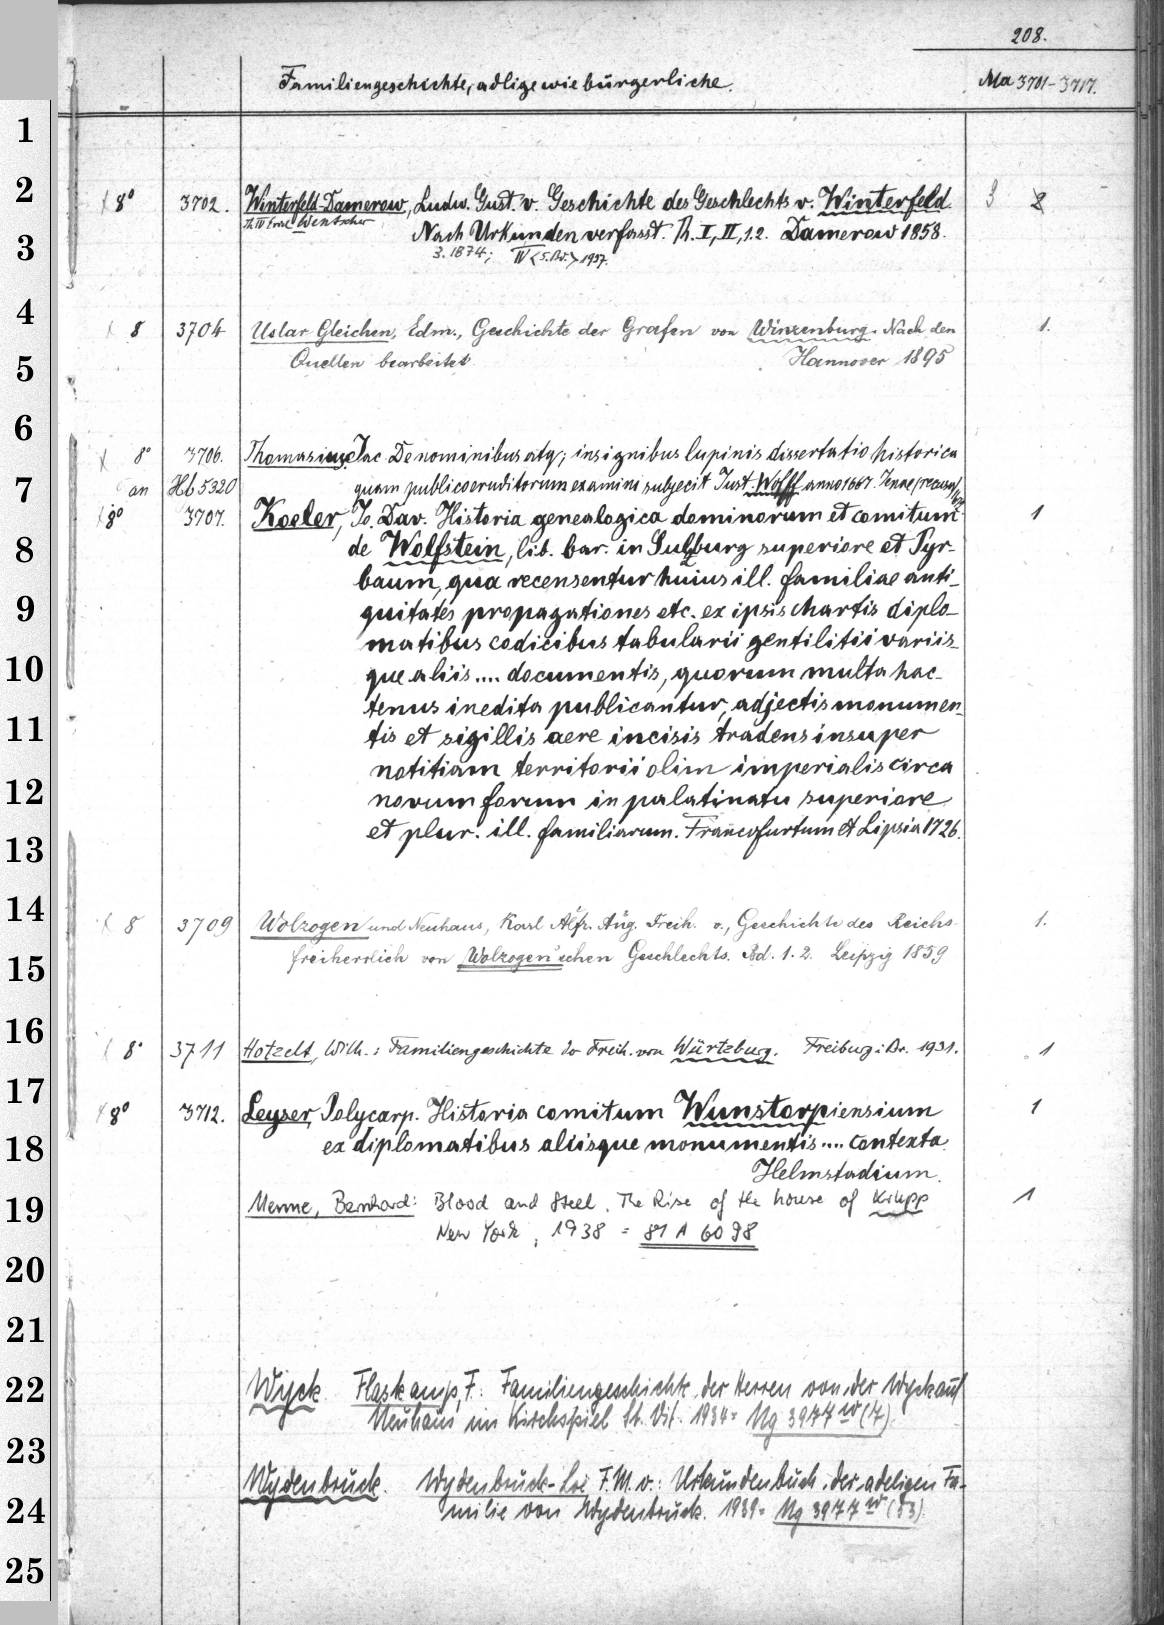 208.
Familiengeschichte, adlige wie bürgerliche. Ma 3701-3717.
1
2
8° 3702. Winterfeld-Damerow, Ludw. Gust. v. Geschichte des Geschlechts v. Winterfeld 2
Wentscher
Nach Urkunden verfasst. Th. I, II, 1.2. Damerow 1858.
3
3. 1874; IV <5. Bd.> 1937.
4
8 3704 Uslar Gleichen, Edm., Geschichte der Grafen von Winzenburg. Nach den 1.
Quellen bearbeitet Hannover 1895
5
6
8° 3706. Thomasius, Jac De nominibus atq; insignibus lupinis dissertatio historica
7
an Hb 5320 quam publico eruditorum examini subjecit Just. Wolff anno 1667. Jenae
8° 3707. Koeler, Jo. Dav. Historia genealogica dominorum et comitum 1
8
de Wolfstein, lib. bar. in Sulzburg superiore et Pyr-
baum, qua recensentur huius ill. familiae anti-
9
quitates propagationes etc. ex ipsis chartis diplo-
matibus codicibus tabularii gentilitii variis-
10
que aliis .... documentis, quorum multa hac-
tenus inedita publicantur, adjectis monumen-
11
tis et sigillis aere incisis tradens insuper
notitiam territorii olim imperialis circa
12
novum forum in palatinatu superiore
et plur. ill. familiarum. Francofurtum et Lipsia 1726.
13
14
8 3709 Wolzogen und Neuhaus, Karl Alfr. Aug. Freih. v., Geschichte des Reichs- 1.
freiherrlich von Wolzogen'schen Geschlechts. Bd. 1. 2. Leipzig 1859
15
16
8° 3711 Hotzelt, Wilh.: Familiengeschichte der Freih. von Würtzburg. Freiburg i. Br. 1931. 1
17
8° 3712. Leyser, Polycarp. Historia comitum Wunstorpiensium 1
18
ex diplomatibus aliisque monumentis .... contexta.
Helmstadium.
19
Menne, Bernhard: Blood and Steel. The Rise of the house of Krupp 1
New York, 1938 = 81 A 6098
20
21
22
Wyck Flaskamp, F.: Familiengeschichte der Herren von der Wyck auf
Neuhaus im Kirchspiel St. Vit. 1934 = Mg 3977 w (7)
23
Wydenbruck. Wydenbruck-Loë F. M. v.: Urkundenbuch der adeligen Fa-
24
milie von Wydenbruck. 1939 = Mg 3977 w (53)
25